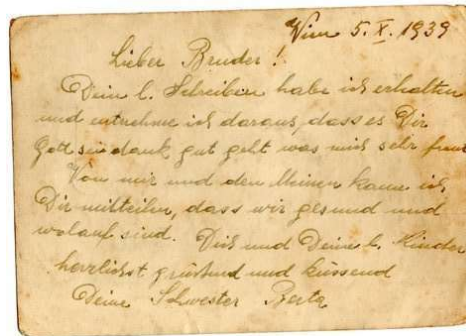 Wien 5. X. 1939
Lieber Bruder!
Dein l. Schreiben habe ich erhalten
und entnehme ich daraus, dass es Dir
Gott sei dank gut geht was mich sehr freut
Von mir und den Meinen kann ich
Dir mitteilen, dass wir gesund und
wolauf sind. Dich und Deine l. Kinder
herzlichst grüssend und küssend
Deine Schwester Berta